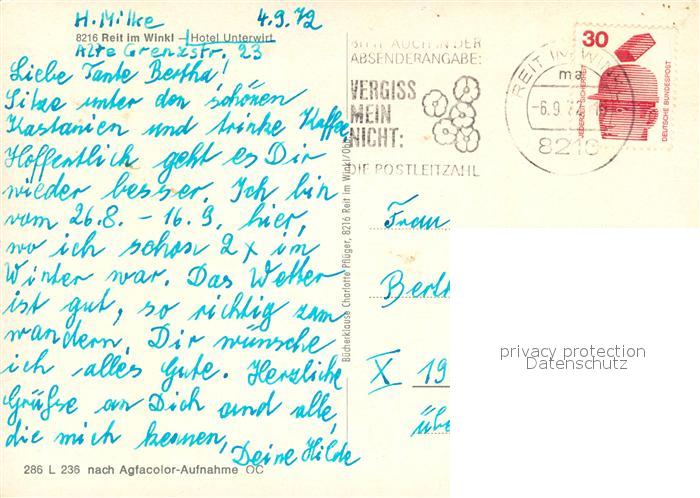 H. Milke 4.9.72
8216 Reit im Winkl – Hotel Unterwirt
Alte Grenzstr. 23
Liebe Tante Bertha!
Sitze unter den schönen
Kastanien und trinke Kaffee,
Hoffentlich geht es Dir
wieder besser. Ich bin
vom 26.8. – 16.9. hier,
wo ich schon 2 x im
Winter war. Das Wetter
ist gut, so richtig zum
wandern, Dir wünsche
ich alles Gute. Herzliche
Grüße an Dich und alle,
die mich kennen,
Deine Hilde
286 L 236 nach Agfacolor-Aufnahme OC
Bücherklause Charlotte Pflüger, 8216 Reit im Winkl/Ob
BITTE AUCH IN DER
ABSENDERANGABE:
VERGISS
MEIN
NICHT:
DIE POSTLEITZAHL
REIT IM WINKL
ma
–6.9.72
8216
30
JEDERZEIT SICHERHEIT
DEUTSCHE BUNDESPOST
Frau
Berth
X 19
übe
privacy protection
Datenschutz